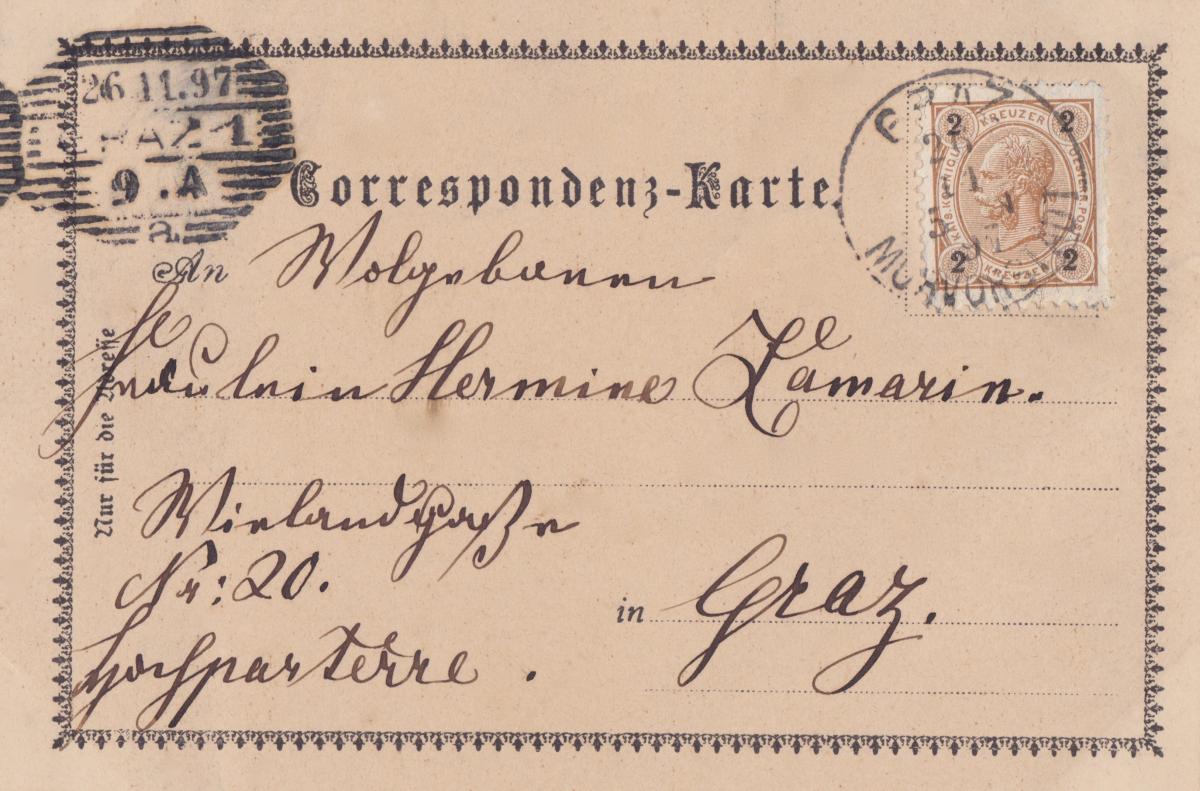 26.11.97
RAZ 1
9 . A
a
Correspondenz-Karte.
2 KREUZER 2
KAIS. KÖNIGL.
2 KREUZER 2
GRAZ
26
11
97
MURVORSTADT
An Wolgeborenen
Fräulein Hermine Zamarin.
Wielandgaße
Nr: 20.
in Graz.
Hochparterre .
Nur für die Adresse